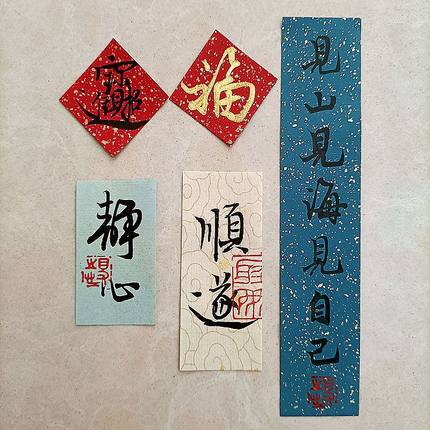 招財進寶
福
靜心
順遂
見山見海見自己